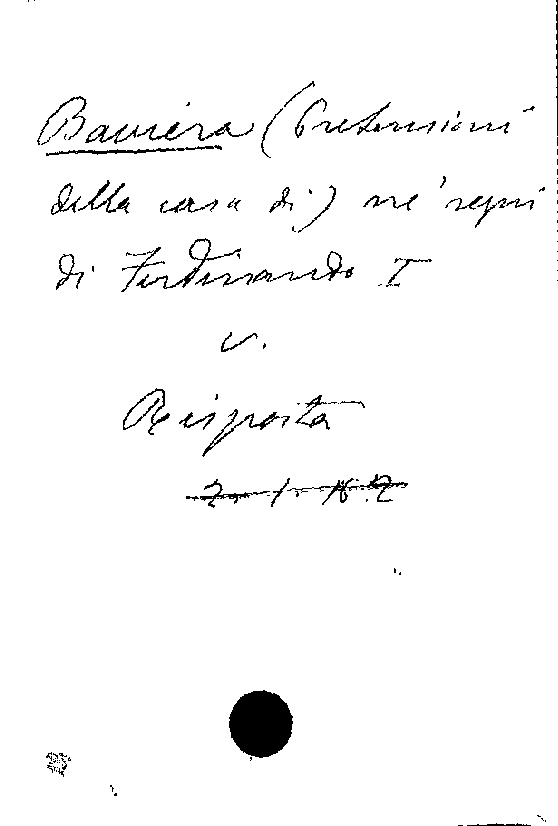 Baviera (Pretensioni
della casa di) ne' regni
di Ferdinando I
v.
Risposta